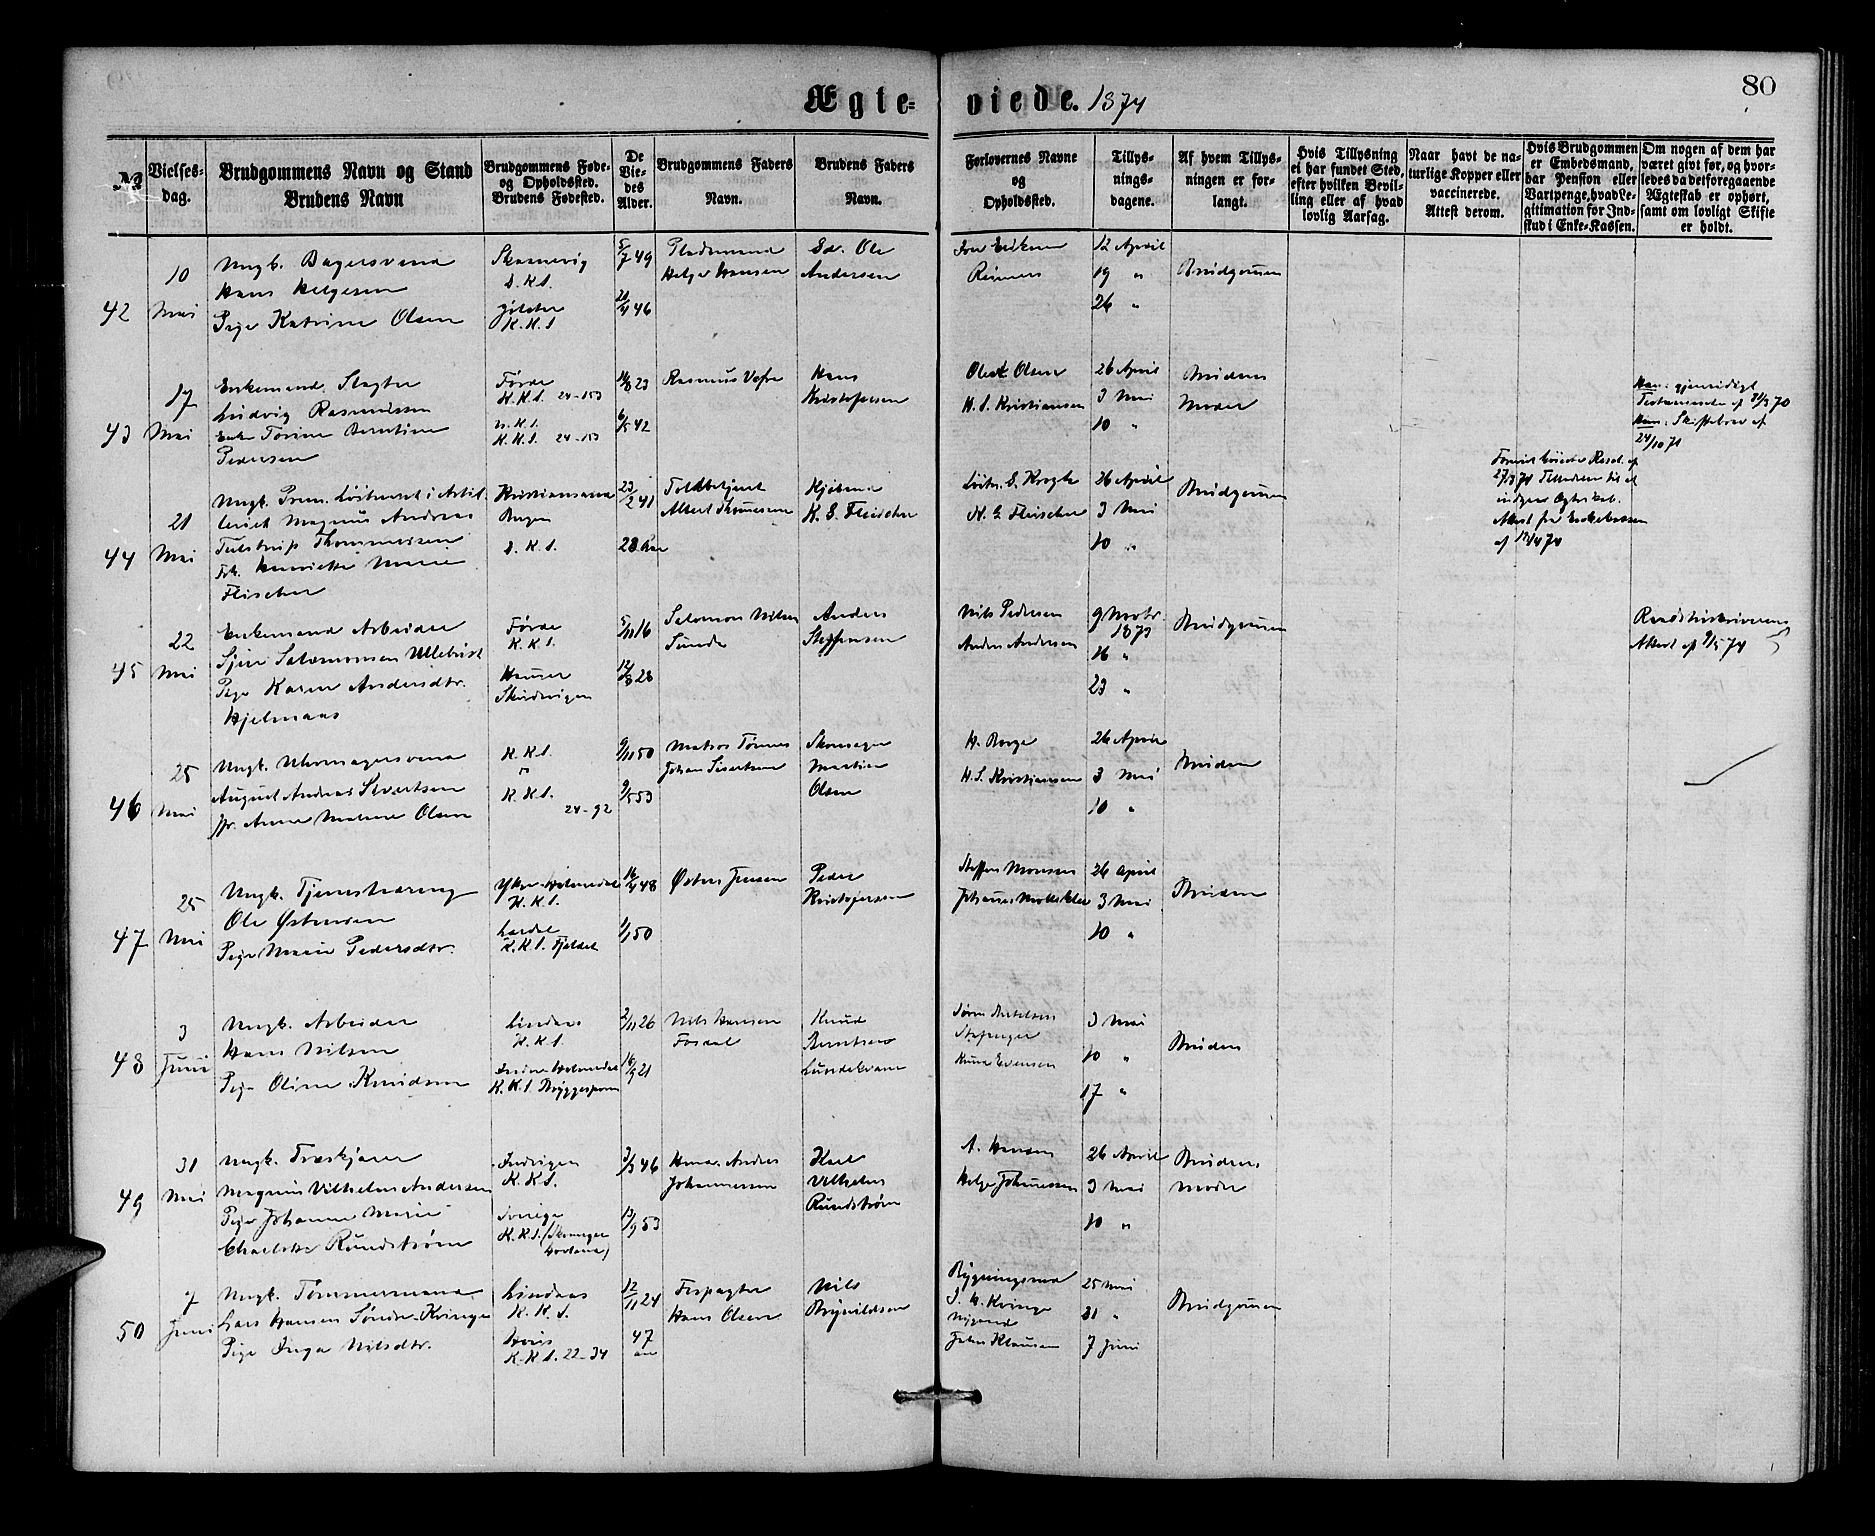 80
Ægteviede. 1874
№
Vielsesdag.
Brudgommens Navn og Stand
Brudens Navn
Brudgommens Føde- og Opholdssted.
Brudens Fødested.
De Viedes Alder.
Brudgommens Faders Navn.
Brudens Faders Navn.
Forlovernes Navne og Opholdssted.
Tillysningsdagene.
Af hvem Tillysningen er forlangt.
Hvis Tillysning ei har fundet Sted, efter hvilken Bevilling eller af hvad lovlig Aarsag.
Naar havt de naturlige Kopper eller vaccinerede. Attest derom.
Hvis Brudgommen er Embedsmand, har Pension eller Vartpenge, hvad Legitimation for Indskud i Enke-Kassen.
Om nogen af dem har været givt før, og hvorledes da det foregaaende Ægteskab er ophørt, samt om lovligt Skifte er holdt.
42
10 Mai
Ungk. Bagersvend
Hans Helgesen
Pige Katrine Olsen
Skonevig
D.K.S.
Jølster
K.K.S.
5/7 49
21/4 46
Pladsmand
Helge Hansen
Sd. Ole
Andersen
Iver Eriksen
12 April
19 "
26 "
Brudgommen
43
17 Mai
Enkemand, Slagter
Ludvig Rasmussen
Enke Torine Berntine
Pedersen
Førde
K.K.S. 24-153
D.K.S.
K.K.S. 24-153
23
6/5 42
Rasmus
Hans
Kristofersen
Olai Olsen
H. S. Kristiansen
26 April
3 Mai
10 "
Brudens
Moder
Han: gjensidigt
Testamente af 31/3 70
Hun: Skiftebrev af
24/10 71
44
21 Mai
Ungk. Prem. Løitnant i Artil-
leriet Magnus Andreas
Tulstrup Thommesen
Frk. Henriette Marie
Fleischer
Kristianssand
Bergen
D.K.S.
23/2 41
28 Aar
Toldbetjent
Albert Thommesen
Kjøbmd
K. S. Fleischer
Løitn. S. Krogh
H. G. Fleischer
26 April
3 Mai
10 "
Brudgommen
27/3 74 Tilladelse til at
indgaa Ægteskab.
Attest fra Enkekassen
af 13/4 74
45
22 Mai
Enkemand Arbeider
Sjur Salomonsen Ullebust
Pige Karen Andersdtr.
Hjelmaas
Førde
K.K.S.
Hammer
Skudevigen
5/11 16
12/8 28
Salomon Nilsen
Sunde
Anders
Steffensen
Nils Pedersen
Anders Andersen
9 Novbr.
1873
16 "
23 "
Brudgommen
Attest af 9/5 74
46
25 Mai
Ungk. Uhrmagersvend
August Andreas Sivertsen
Jfr. Anna Malene Olsen
K.K.S.
K.K.S.
24-92
9/11 50
9/5 53
Matros Tønnes
Johan Sivertsen
Skomager
Martin
Olsen
H. Berge
H. S. Kristiansen
26 April
3 Mai
10 "
Bruden
47
25 Mai
Ungk. Tjenestedreng
Ole Østensen
Pige Marie Pedersdtr.
Ytre Holmedal
K.K.S.
Lærdal
K.K.S. Fjeldet
16/4 48
1/1 50
Østen Jensen
Peder
Kristofersen
Steffen Monsen
Johannes
26 April
3 Mai
10 "
Bruden
48
3 Juni
Ungk. Arbeider
Hans Nilsen
Pige Oline Knudsen
Lindaas
K.K.S.
Indre Holmedal
K.K.S. Bryggesporen
2/11 26
16/9 21
Nils Hansen
Fosdal
Knud
Berntsen
Søren
Knud Evensen
3 Mai
10 "
17 "
Bruden
49
31 Mai
Ungk. Træskjærer
Magnus Vilhelm Andersen
Pige Johanne Marie
Charlotte Rundstrøm
K.K.S.
Sverige
K.K.S.
3/3 46
13/9 53
Andreas
Johannessen
Karl
Vilhelm
Rundstrøm
A. Hansen
Helge Johannessen
26 April
3 Mai
10 "
Brudens
Moder
50
7 Juni
Ungk. Tømmermand
Lars Hansen Søndre-Kvinge
Pige Inga Nilsdtr.
Lindaas
K.K.S.
Hovis
K.K.S. 22-34
12/11 24
47
Aar
Forpagter
Hans Olsen
Nils
Brynildsen
Bygningsmd
J. H. Kvinge
Nygaard
Johan Klausen
25 Mai
31 "
7 Juni
Brudgommen